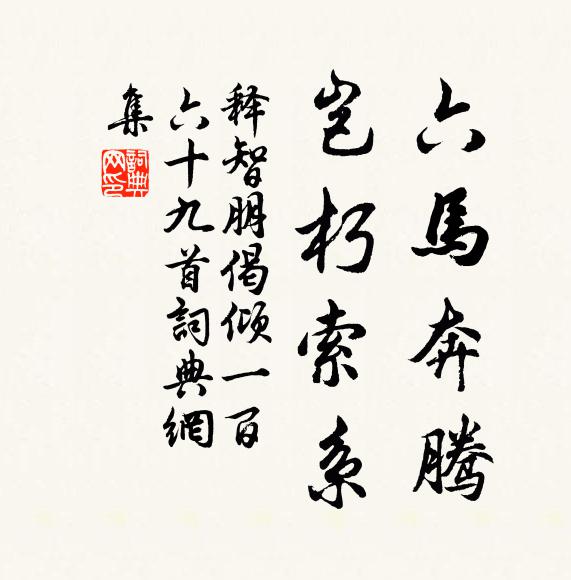 六馬奔騰
岂朽索系
释智朋偈倾一百
六十九首詞典網
集
詞典网印